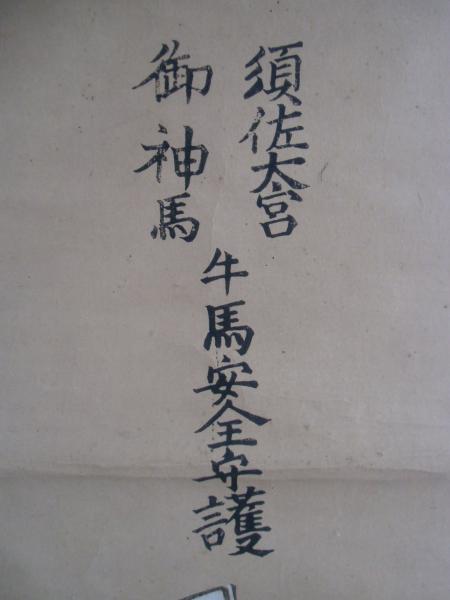 須佐大宮
御神馬
牛馬安全守護